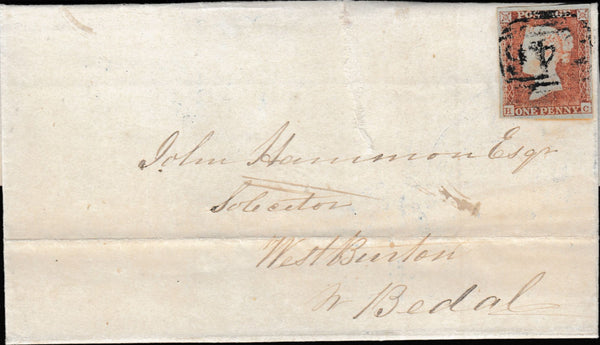 POSTAGE
H ONE PENNY C
John Hammon Esqr
Solicitor
West Burton
Nr Bedal